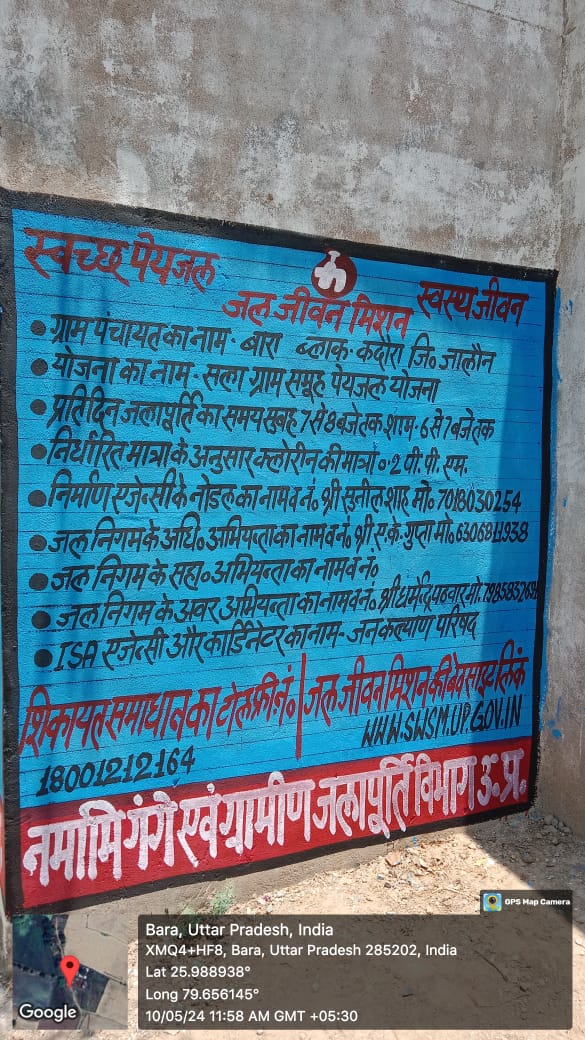 स्वच्छ पेयजल
जल जीवन मिशन
स्वस्थ जीवन
• ग्राम पंचायत का नाम - बारा ब्लाक - कदौरा जि० जालौन
• योजना का नाम - सला ग्राम समूह पेयजल योजना
• प्रतिदिन जलापूर्ति का समय सुबह 7 से 8 बजे तक शाम - 6 से 7 बजे तक
• निर्धारित मात्रा के अनुसार क्लोरीन की मात्रा ०.2 पी. पी. एम.
• निर्माण एजेन्सी के नोडल का नाम व नं. श्री सुनील शाह मो० 7018030254
• जल निगम के अधि० अभियन्ता का नाम व नं. श्री ए.के. गुप्ता मो० 6306811938
• जल निगम के सहा० अभियन्ता का नाम व नं.
• जल निगम के अवर अभियन्ता का नाम व नं. श्री धर्मेन्द्र मो.
• ISA एजेन्सी और कार्डिनेटर का नाम - जन कल्याण परिषद
शिकायत समाधान का टोल फ्री नं. | जल जीवन मिशन की बेवसाइट लिंक
18001212164 WWW.SWSM.UP.GOV.IN
नमामि गंगे एवं ग्रामीण जलापूर्ति विभाग उ. प्र.
GPS Map Camera
Bara, Uttar Pradesh, India
XMQ4+HF8, Bara, Uttar Pradesh 285202, India
Lat 25.988938°
Long 79.656145°
10/05/24 11:58 AM GMT +05:30
Google